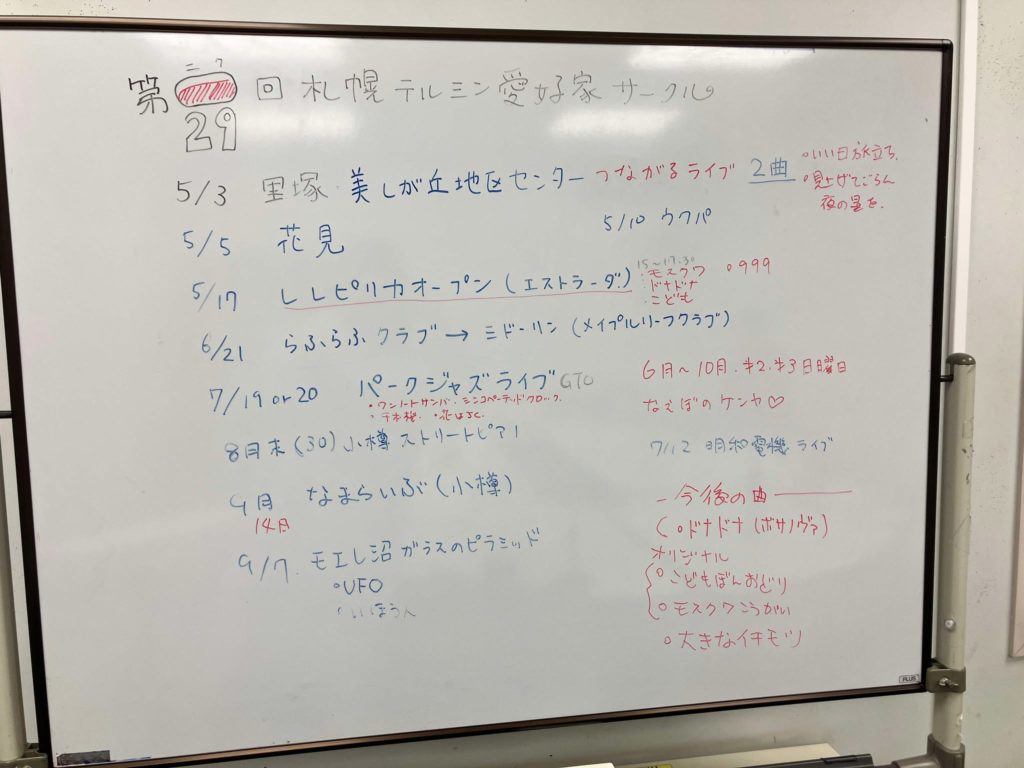 ニク
第 回 札幌 テルミン愛好家 サークル
29
5/3 里塚 美しが丘地区センター つながるライブ 2曲
○いい日旅立ち.
○見上げてごらん
夜の星を.
5/5 花見
5/10 ウクパ
5/17 レレピリカオープン (エストラーダ)
15〜17:30
・モスクワ
・ドナドナ
・こども
○999
6/21 らふらふ クラブ → ミドーリン (メイプルリーフクラブ)
7/19 or 20 パークジャズライブ GTO
・ワンノートサンバ・シンコペーテッドクロック.
・千本桜.
6月〜10月.
日曜日
なえぼのケンヤ♡
8月末 (30) 小樽 ストリートピアノ
7/12 明和電機 ライブ
9月 なまらいぶ (小樽)
14日
9/7. モエレ沼 ガラスのピラミッド
○UFO
今後の曲
(○ドナドナ (ボサノヴァ)
オリジナル
○こどもぼんおどり
○モスクワこうがい
○大きなイチモツ
PLUS